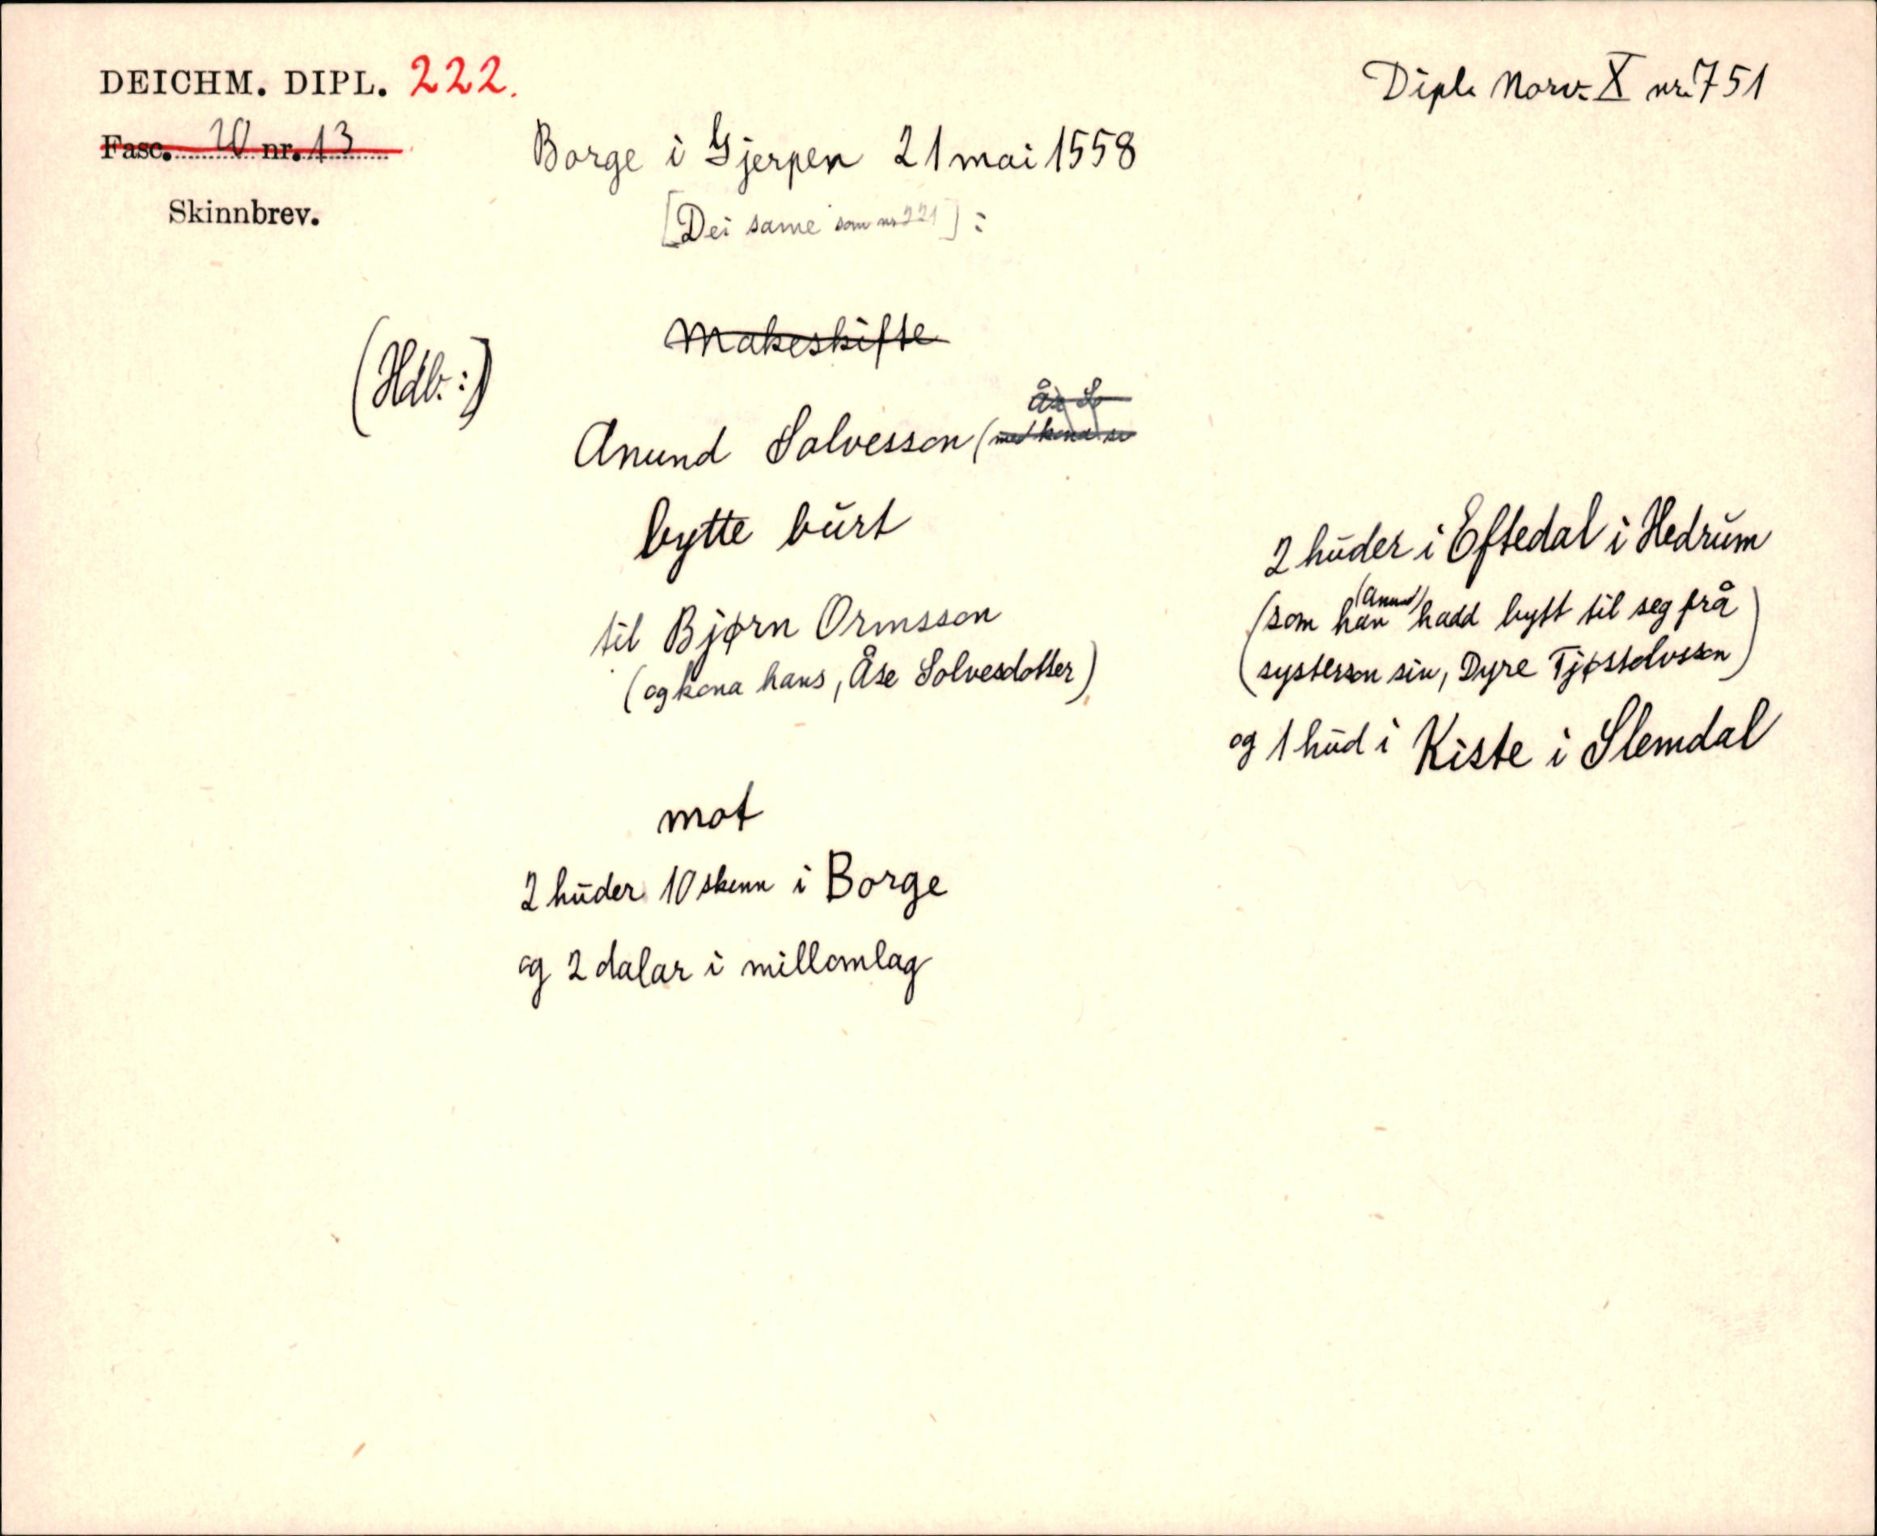 DEICHM. DIPL. 222.
Dipl. Norv. X nr. 751
Fasc. 20 nr. 13
Borge i Gjerpen 21 mai 1558
Skinnbrev.
[Dei same som nr 221] :
Makeskifte
(Hdb. :)
Anund Solvesson (med kona si
Åse So
bytte burt
til Bjørn Ormsson
(og kona hans, Åse Solvesdotter)
2 huder i Eftedal i Hedrum
(som han (Anund) hadd bytt til seg frå
systerson sin, Dyre Tjøstolvsson)
og 1 hud i Kiste i Slemdal
mot
2 huder 10 skinn i Borge
og 2 dalar i millomlag